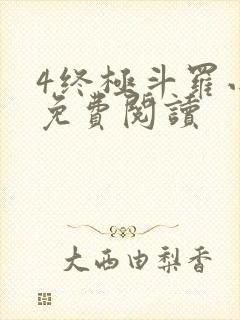 4终極斗羅
免費閱讀
大西由梨香